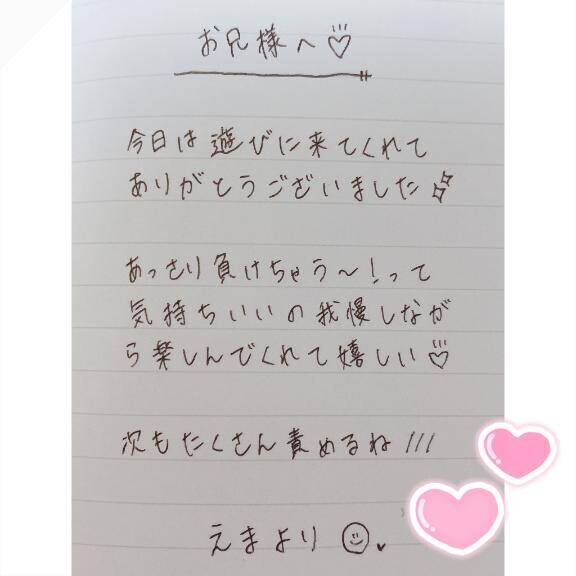 お兄様へ♡
今日は遊びに来てくれて
ありがとうございました
あっさり負けちゃう〜!って
気持ちいいの我慢しなが
ら楽しんでくれて嬉しい♡
次もたくさん責めるね///
えまより